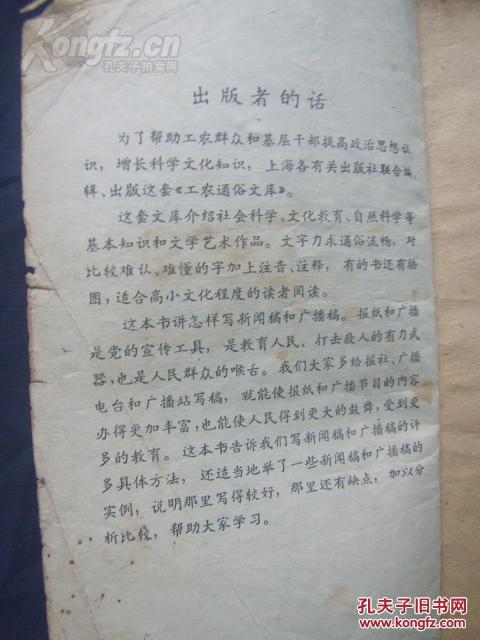 Kongfz.cn
孔夫子拍卖网
出版者的话
为了帮助工农群众和基层干部提高政治思想认
识，增长科学文化知识，上海各有关出版社联合编
辑、出版这套《工农通俗文库》。
这套文库介绍社会科学、文化教育、自然科学等
基本知识和文学艺术作品。文字力求通俗流畅，对
比较难认、难懂的字加上注音、注释，有的书还有插
图，适合高小文化程度的读者阅读。
这本书讲怎样写新闻稿和广播稿。报纸和广播
是党的宣传工具，是教育人民、打击敌人的有力武
器，也是人民群众的喉舌。我们大家多给报社、广播
电台和广播站写稿，就能使报纸和广播节目的内容
办得更加丰富，也能使人民得到更大的鼓舞，受到更
多的教育。这本书告诉我们写新闻稿和广播稿的许
多具体方法，还适当地举了一些新闻稿和广播稿的
实例，说明那里写得较好，那里还有缺点，加以分
析比较，帮助大家学习。
孔夫子旧书网
www.kongfz.com